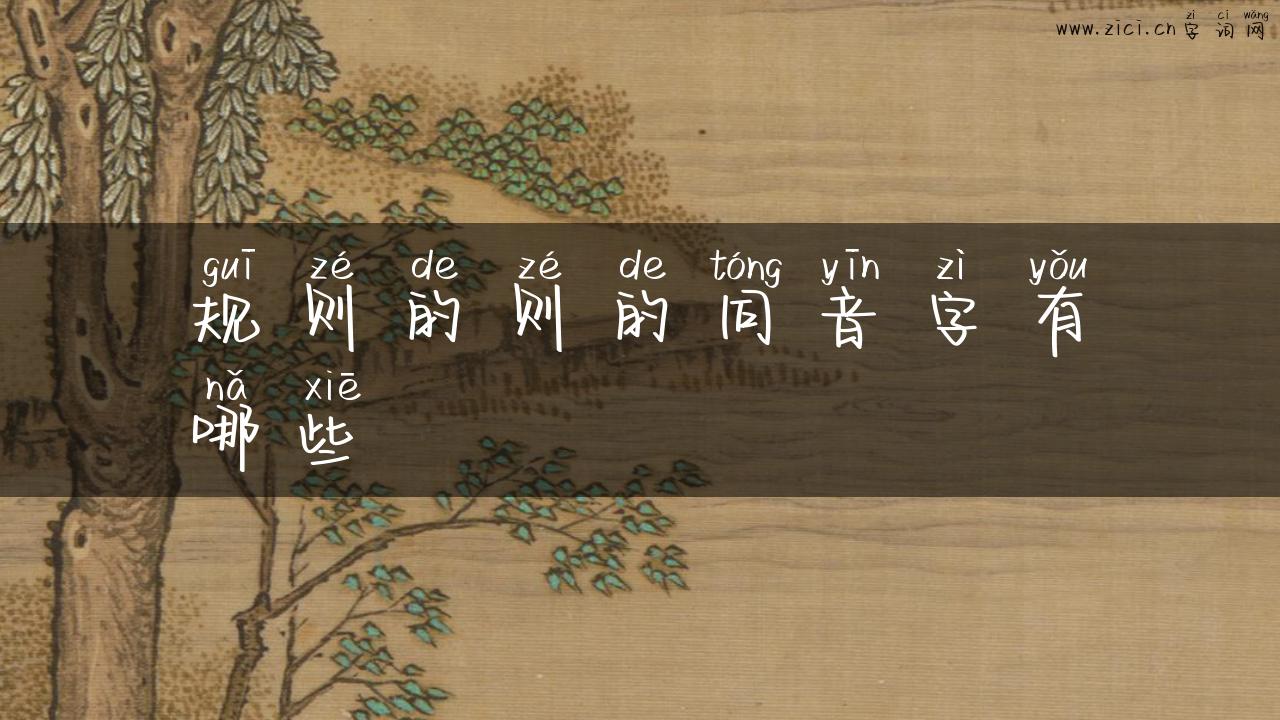 zì cí wǎng
www.zici.cn 字词网
guī zé de zé de tóng yīn zì yǒu
规则的则的同音字有
nǎ xiē
哪些